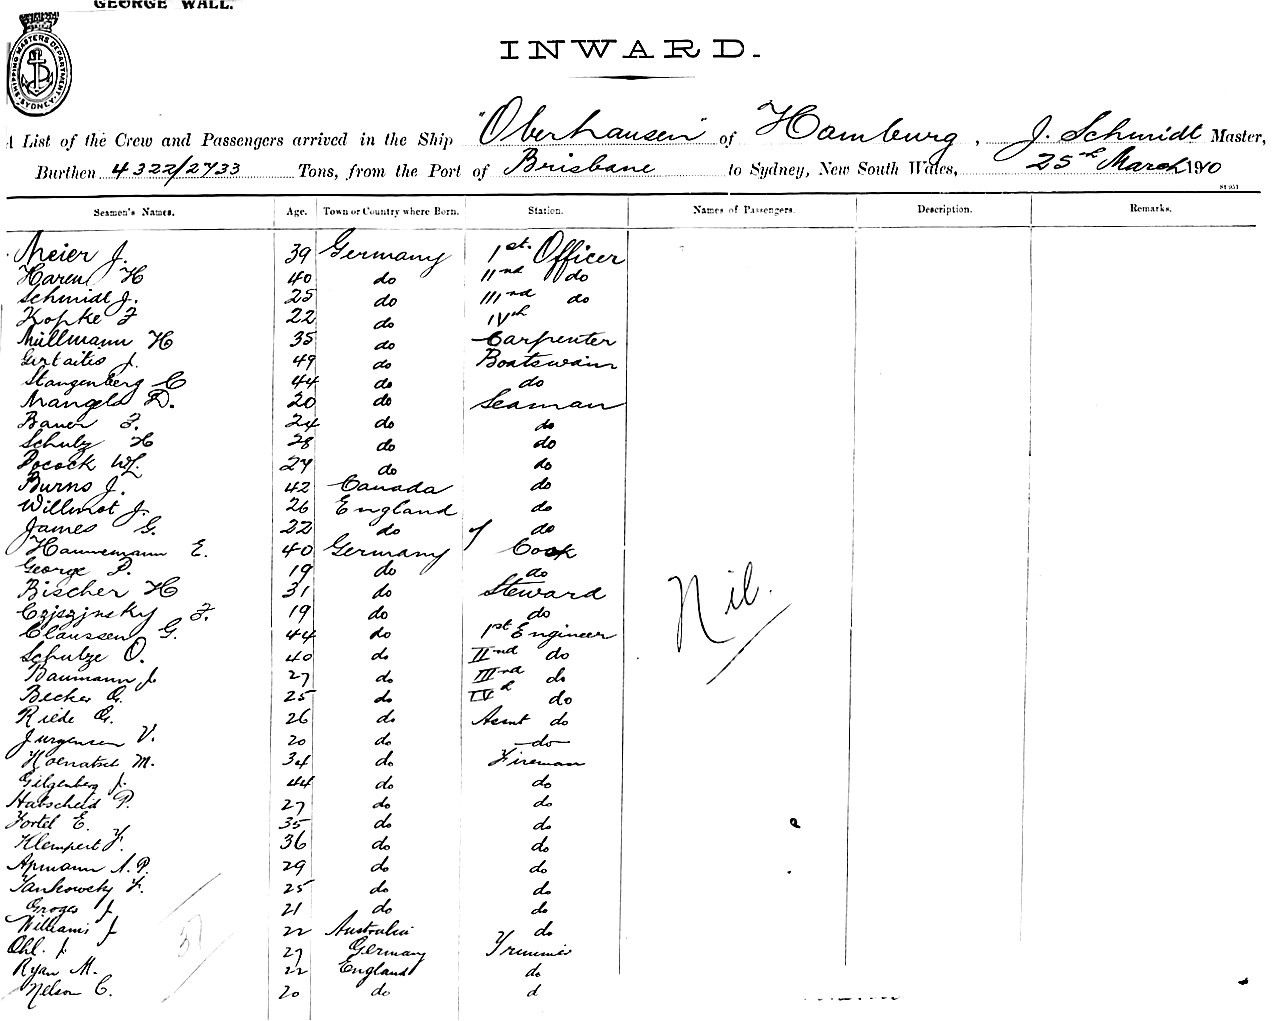 GEORGE WALL.
SHIPPING MASTERS DEPARTMENT SYDNEY
INWARD.
A List of the Crew and Passengers arrived in the Ship "Oberhausen" of Hamburg, J. Schmidt Master,
Burthen 4322/2733 Tons, from the Port of Brisbane to Sydney, New South Wales, 25th March 1910
Seamen's Names. Age. Town or Country where Born. Station. Names of Passengers. Description. Remarks.
Meier J. 39 Germany 1st. Officer
Haren H 40 do IInd do
Schmidt J. 25 do IIIrd do
Kopke F 22 do IVth
Müllmann H 35 do Carpenter
Girtaitis J. 49 do Boatswain
Stangenberg C 44 do do
Mangels D. 20 do Seaman
Bauer F. 24 do do
Schulz H 28 do do
Pocock W. 27 do do
Burns J. 42 Canada do
Willmot J. 26 England do
James G. 22 do do
Hannemann E. 40 Germany Cook
George P. 19 do do
Bischer H 31 do Steward
Czjszjnsky F. 19 do do
Claussen G. 44 do 1st Engineer
Schulze O. 40 do IInd do
Baumann J. 27 do IIIrd do
Becker G. 25 do IVth do
Riede G. 26 do Assnt do
Jurgensen V. 20 do do
M. 34 do Fireman
Gilgenberg J. 44 do do
Habscheid P. 27 do do
Fortel E. 35 do do
Klempert F. 36 do do
Apmann A. P. 29 do do
Yankowsky F. 25 do do
Groges J 21 do do
Williams J 22 Australia do
Ohl. J. 27 Germany Trimmer
Ryan M. 22 England do
Nelson C. 20 do d
Nil.